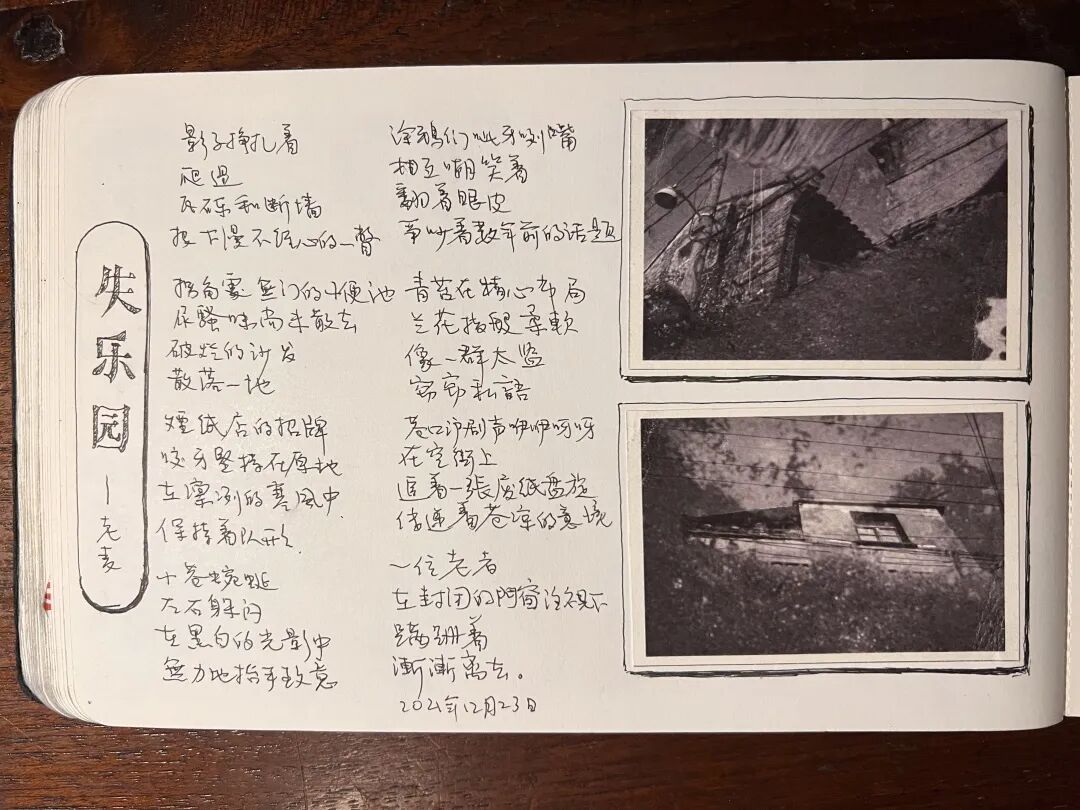 失乐园
—老麦
影子挣扎着
爬过
瓦砾和断墙
投下漫不经心的一瞥
拐角處無门的小便池
尿骚味尚未散去
破烂的沙发
散落一地
煙纸店的招牌
咬牙坚持在原地
在凛冽的寒风中
保持着队形
小巷蜿蜒
左右躲闪
在黑白的光影中
無力地抬手致意
涂鸦们呲牙咧嘴
相互嘲笑着
翻着眼皮
争吵着数年前的话题
青苔在精心布局
兰花指般柔軟
像一群太监
窃窃私語
巷口沪剧声咿咿呀呀
在空街上
追着一張废纸盘旋
传递着苍凉的意境
一位老者
在封闭的門窗注视下
蹒跚着
漸漸离去。
2021年12月23日